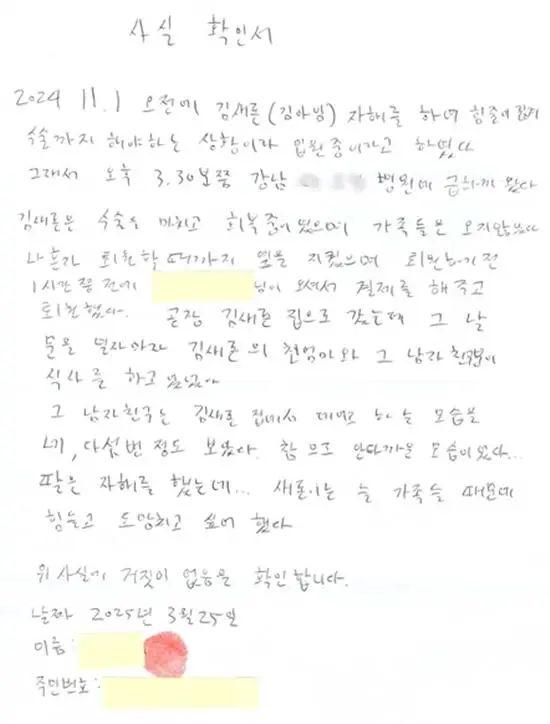 사실 확인서
2024 11.1 오전에 김새론(김아임) 자해를 하여 힘줄이
수술까지 해야하는 상황이라 입원중이라고 하였다
그래서 오후 3.30분쯤 강남 병원에 급하게 왔다
김새론은 수술을 마치고 회복중이었으며 가족들은 오지않았다
나혼자 퇴원할때까지 옆을 지켰으며 퇴원하기전
1시간 전에 님이 오셔서 결제를 해주고
퇴원했다. 곧장 김새론 집으로 갔는데 그 날
문을 열자마자 김새론의 친엄마와 그 남자친구분이
식사를 하고 있었다
그 남자친구는 김새론 집에서 하는 모습을
네, 다섯번 정도 보았다. 참으로 안타까운 모습이었다...
팔은 자해를 했는데... 새론이는 늘 가족들 때문에
힘들고 도망치고 싶어 했다
위 사실에 거짓이 없음을 확인합니다.
날짜 2025년 3월 25일
이름:
주민번호: